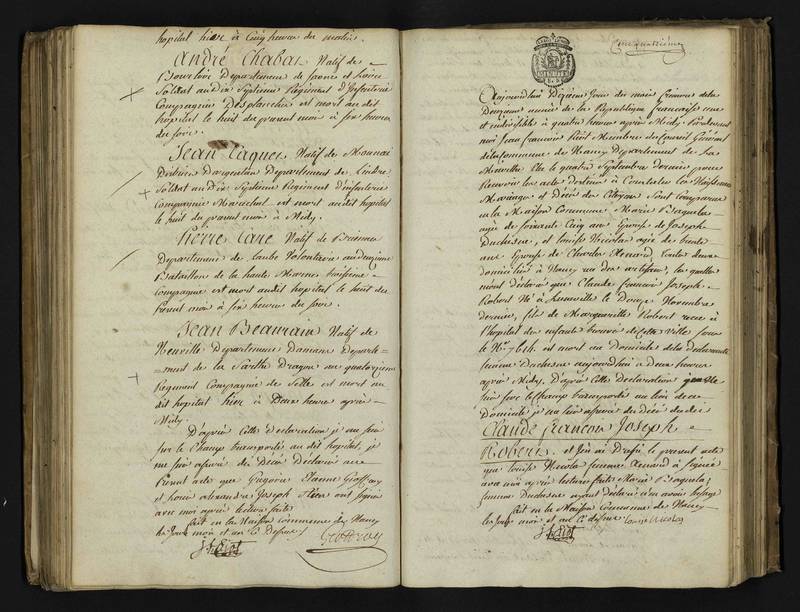 hopital hier à Cinq heures du matin.
André Chabas Natif de
Bourbon Departement de Saone et Loire
Soldat au Dix Septieme Regiment d'Infanterie
Compagnie Desplanches est mort au dit
hopital le huit du present mois à six heures
du soir.
Jean Caquet Natif de
District d'argenton Departement de L'indre
Soldat au Dix Septieme Regiment d'infanterie
Compagnie Marechal est mort audit hopital
le huit du present mois à Midy.
Pierre Carré Natif de Brienne
Departement de Laube Volontaire au deuxieme
Bataillon de la haute Marne troisieme
Compagnie est mort audit hopital le huit du
present mois à six heures du soir.
Jean Beaurain Natif de
Neuville Departement Departe-
-ment de la Sarthe Dragon au quatorzieme
Regiment Compagnie de est mort au
dit hopital hier à Deux heures après
Midy.
D'après Cette Declaration je me suis
sur le Champ transporté au dit hopital, je
me suis assuré du Decès Declaré au
present acte que Gregoire Etienne Geoffroy
et Louis alexandre Joseph ont signé
avec moi après lecture faite
fait en la Maison commune de Nancy
les Jour mois et an Ci dessus
Geoffroy
cinquantième
Aujourd'hui Dixieme Jour du mois frimaire de la
Deuxieme année de la Republique francaise une
et indivisible à quatre heures après Midy Pardevant
moi Jean francois Membre du Conseil Général
de la Commune de Nancy Departement de la
Meurthe Elu le quatre Septembre dernier pour
Recevoir les actes destinés à Constater les Naissances
Mariages et Décès des Citoyens Sont Comparues
en la Maison Commune Marie Baquela
agée de soixante Cinq ans Epouse de Joseph
Duchesne, et Louise Nicolas agée de trente
ans Epouse de Charles Renard, toutes deux
domiciliées à Nancy rue des artisans, lesquelles
m'ont declaré que Claude francois Joseph
Robert Né à Luneville le Douze Novembre
dernier, fils de Marguerite Robert recue à
l'hopital des enfants trouvés de Cette Ville sous
le No. 7614. est mort au Domicile de la declarante
femme Duchesne aujourd'hui à Deux heures
après Midy. D'après Cette Declaration je me
suis sur le Champ transporté au lieu de ce
Domicile je me suis assuré du Décès du dit
Claude francois Joseph
Robert. et j'en ai Dressé le present acte
que Louise Nicolas femme Renard à signé
avec moi après lecture faite Marie Baquela;
femme Duchesne ayant déclaré n'en avoir l'usage
fait en la Maison Commune de Nancy
les Jour mois et an Ci dessus Louise Nicolas